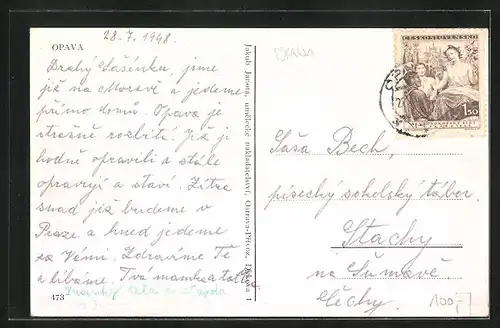 28.7.1948.
OPAVA
Drahý Sášénku, jsme
již na Moravě a jedeme
přímo domů. Opava je
strašně rozbitá. Již ji
hodně opravili a stále
opravují a staví. Zítra
snad již budeme v
Praze a hned jedeme
za Vámi. Zdravíme Tě
a líbáme. Tvá mamka a taťka
473
Jakub Janota, umělecké nakladatelství, Ostrava-Přívoz,
ČESKOSLOVENSKO
1.50
Sáša Bech,
písecký sokolský tábor
Stachy
na Šumavě.
Čechy.
100,-